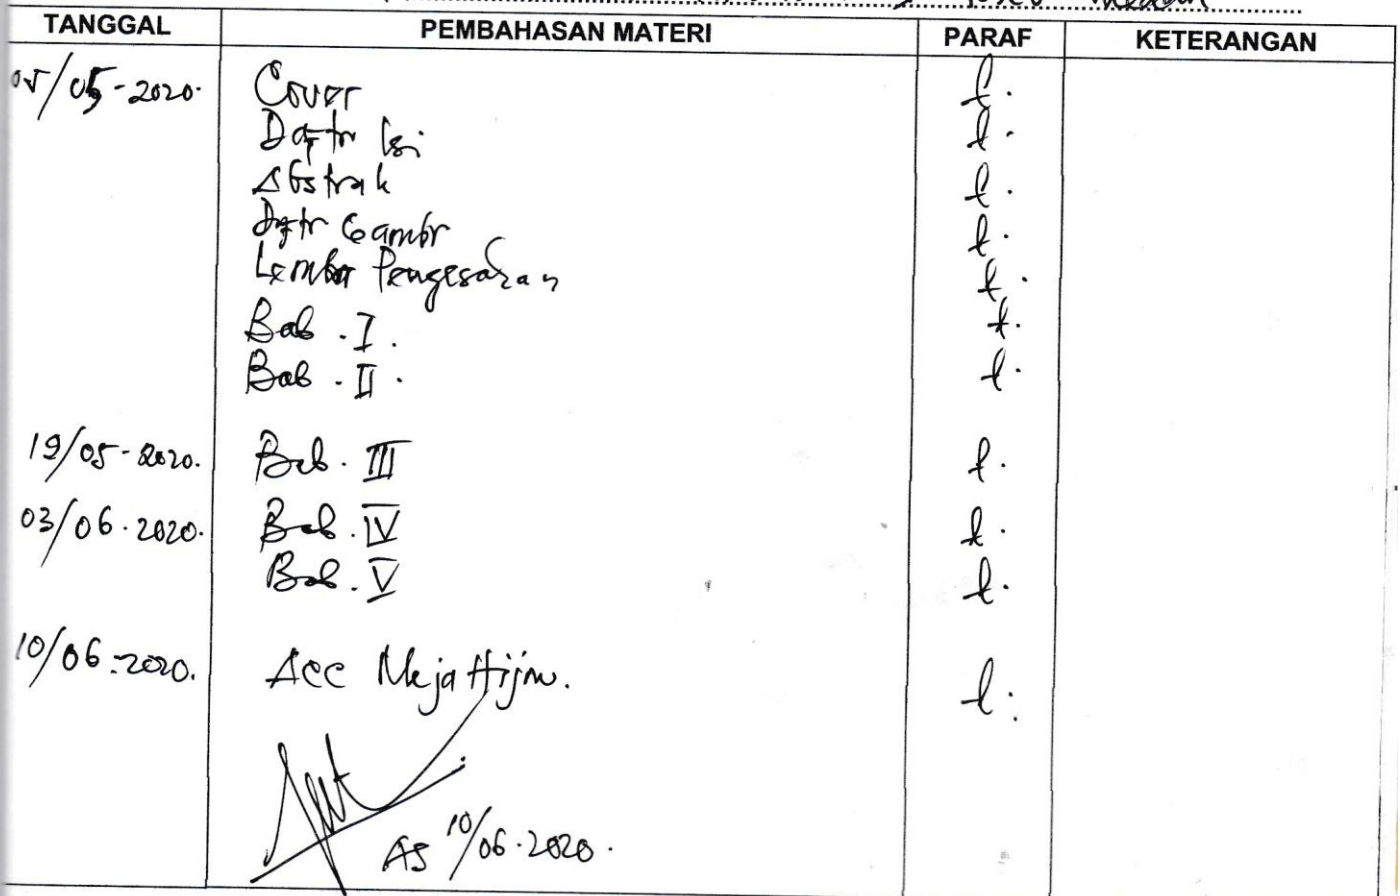 TANGGAL PEMBAHASAN MATERI PARAF KETERANGAN
05/05-2020. Cover
Daftr Isi
Abstrak
Daftr Gambr
Lembar Pengesahan
Bab . I .
Bab . II .
19/05-2020. Bab . III
03/06.2020. Bab . IV
Bab . V
10/06-2020. Acc Meja Hijau.
AS 10/06.2020.